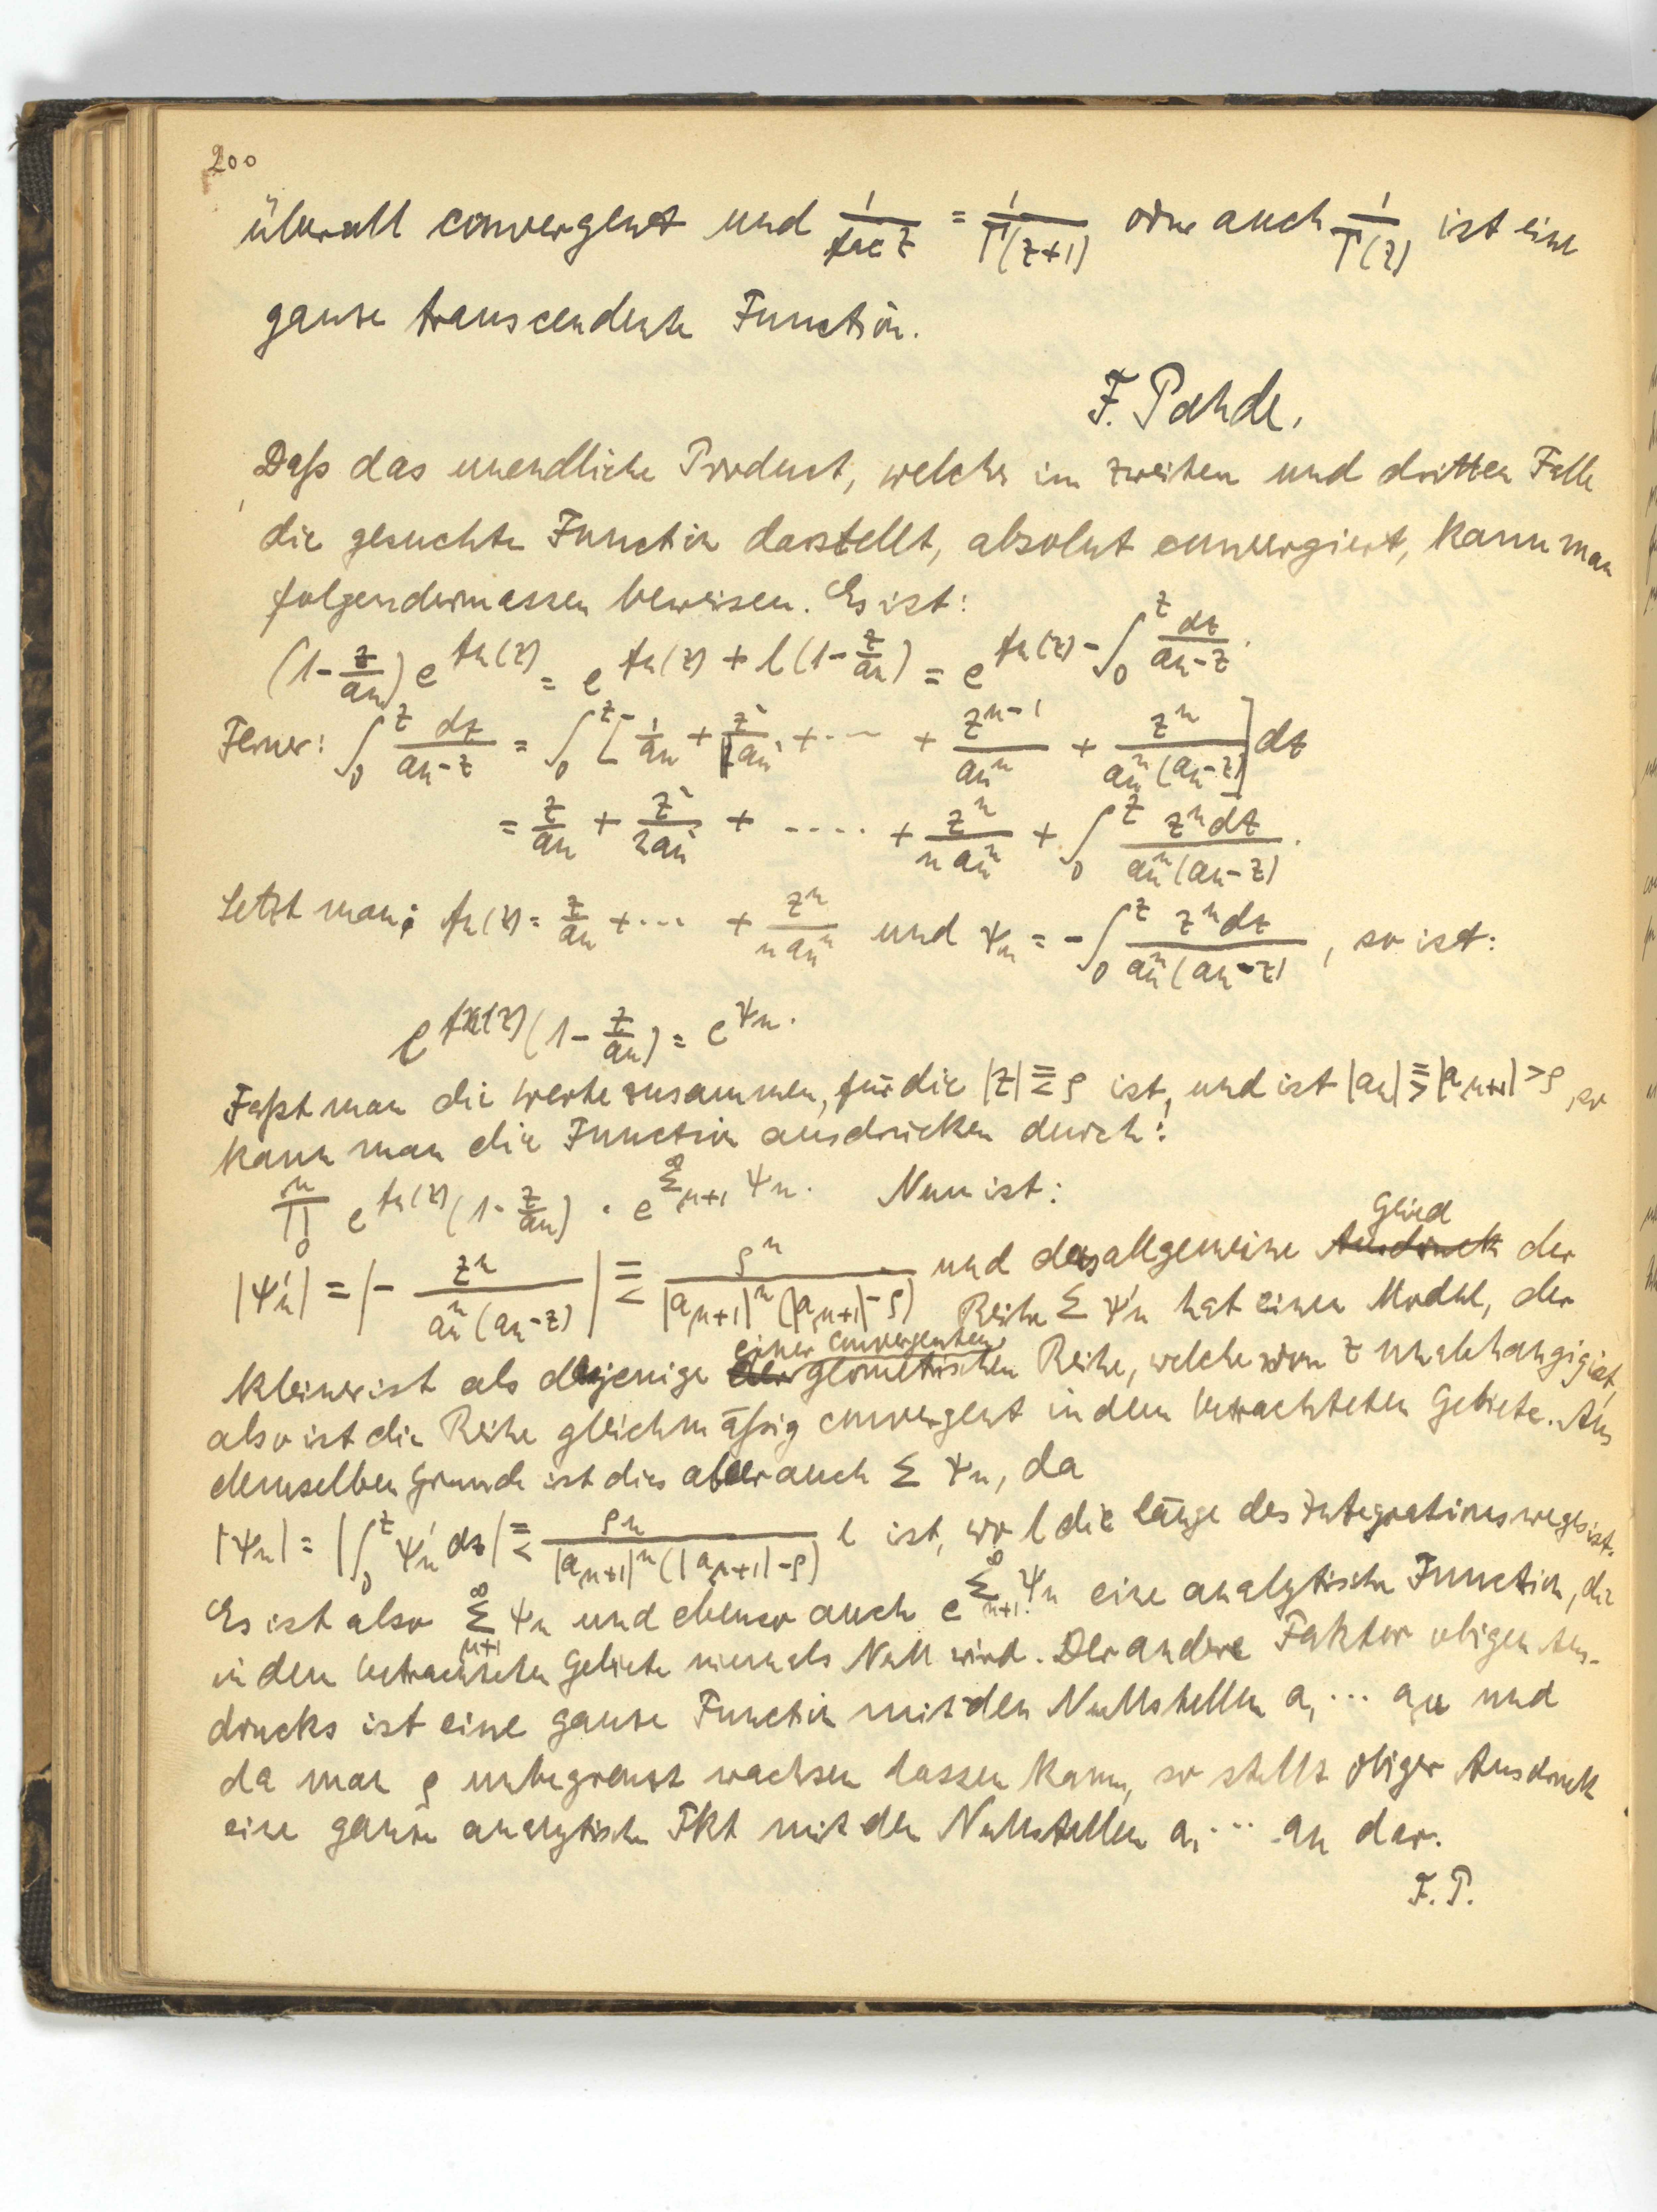 200
überall convergent und 1/fac z = 1/Γ(z+1) oder auch 1/Γ(z) ist eine
ganze transcendente Function.
F. Pahde.
Daß das unendliche Product, welches im zweiten und dritten Falle
die gesuchte Function darstellt, absolut convergiert, kann man
folgendermassen beweisen. Es ist:
(1-z/aₙ) e^{fₙ(z)} = e^{fₙ(z) + l(1-z/aₙ)} = e^{fₙ(z) - ∫₀^z dz/(aₙ-z)}.
Ferner: ∫₀^z dz/(aₙ-z) = ∫₀^z [1/aₙ + z/aₙ² + ... + z^{n-1}/aₙⁿ + zⁿ/(aₙⁿ(aₙ-z))] dz
= z/aₙ + z²/(2aₙ²) + .... + zⁿ/(n aₙⁿ) + ∫₀^z zⁿdz/(aₙⁿ(aₙ-z)).
Setzt man: fₙ(z) = z/aₙ + ... + zⁿ/(n aₙⁿ) und ψₙ = -∫₀^z zⁿdz/(aₙⁿ(aₙ-z)), so ist:
e^{fₙ(z)}(1-z/aₙ) = e^{ψₙ}.
Faßt man die Werte zusammen, für die |z| ≦ ρ ist, und ist |aₙ| ≧ |a_{μ+1}| > ρ, so
kann man die Function ausdrücken durch:
∏₀^μ e^{fₙ(z)}(1-z/aₙ) · e^{∑_{μ+1}^∞ ψₙ}. Nun ist:
|ψ'ₙ| = |- zⁿ/(aₙⁿ(aₙ-z))| ≦ ρⁿ/(|a_{μ+1}|ⁿ(|a_{μ+1}|-ρ)) und das allgemeine Ausdruck Glied der
Reihe ∑ ψ'ₙ hat einen Modul, der
kleiner ist als dasjenige der einer convergenten geometrischen Reihe, welche von z unabhängig ist,
also ist die Reihe gleichmäßig convergent in dem betrachteten Gebiete. Aus
demselben Grunde ist dies aber auch ∑ ψₙ, da
|ψₙ| = |∫₀^z ψ'ₙ dz| ≦ ρⁿ/(|a_{μ+1}|ⁿ(|a_{μ+1}|-ρ)) l ist, wo l die länge des Integrationsweges ist.
Es ist also ∑_{μ+1}^∞ ψₙ und ebenso auch e^{∑_{μ+1}^∞ ψₙ} eine analytische Function, die
in dem betrachteten Gebiete niemals Null wird. Der andere Faktor obigen Aus-
drucks ist eine ganze Function mit den Nullstellen a₁ ... a_μ und
da man ρ unbegrenzt wachsen lassen kann, so stellt obiger Ausdruck
eine ganze analytische Fkt mit den Nullstellen a₁ ... aₙ dar.
F. P.